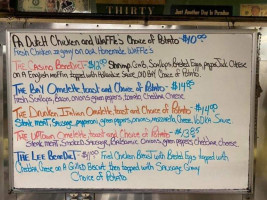 THIRTY
Just Another Day in Paradise
Chicken and Waffle's Choice of Potato $10.00
Fresh Chicken gravy on oat homemade Waffle's
The Casino Benedict $13.95 Shrimp, Crab, Scallops
On A English muffin topped with
Choice of Potato
The Bay Omelette, toast and Choice of Potato - $14.95
Fresh Scallops, bacon, onions, green peppers, tomato, cheddar Cheese
The Drunken Italian Omelette, toast and Choice of Potato $14.00
Steak meat, Sausage, pepperoni, green peppers, onions, mozzarella Cheese, Vodka Sauce
The Uptown Omelette, toast and Choice of Potato - $13.95
Steak meat, Smoked Sausage, onions, green peppers, cheddar cheese
The Lee Benedict - Fried Chicken Breast with Basted Eggs topped with
Cheddar Cheese on A Grilled Biscuit then topped with Sausage Gravy
Choice of Potato